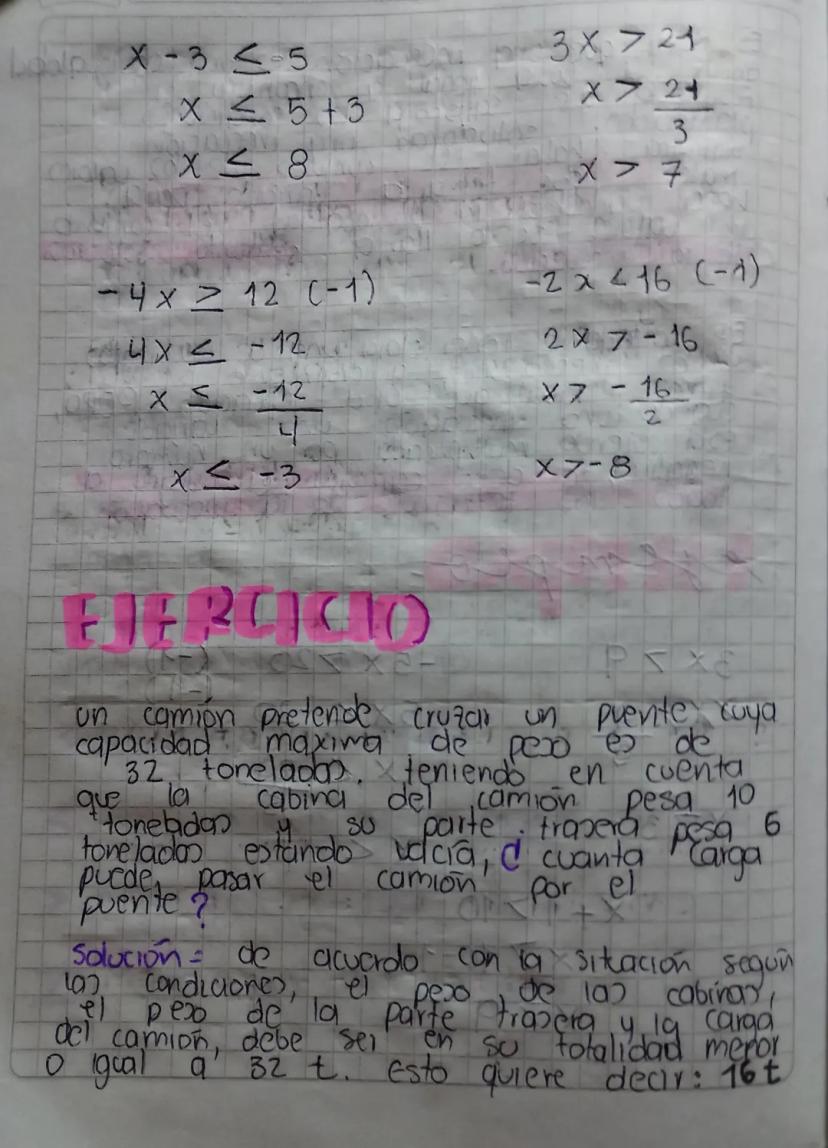 x - 3 ≤ 5
x ≤ 5 + 3
x ≤ 8
3x > 21
x > 21/3
x > 7
-4x ≥ 12 (-1)
4x ≤ -12
x ≤ -12/4
x ≤ -3
-2x < 16 (-1)
2x > -16
x > -16/2
x > -8
EJERCICIO
un camión pretende cruzar un puente cuya
capacidad maxima de peso es de
32 toneladas. teniendo en cuenta
que la cabina del camión pesa 10
toneladas y su parte trasera pesa 6
toneladas estando vacía, ¿ cuanta carga
puede pasar el camión por el
puente?
Solución = de acuerdo con la sitación según
las condiciones, el peso de las cabinas,
el peso de la parte trasera y la carga
del camión, debe ser en su totalidad menor
o igual a 32 t. Esto quiere decir: 16t